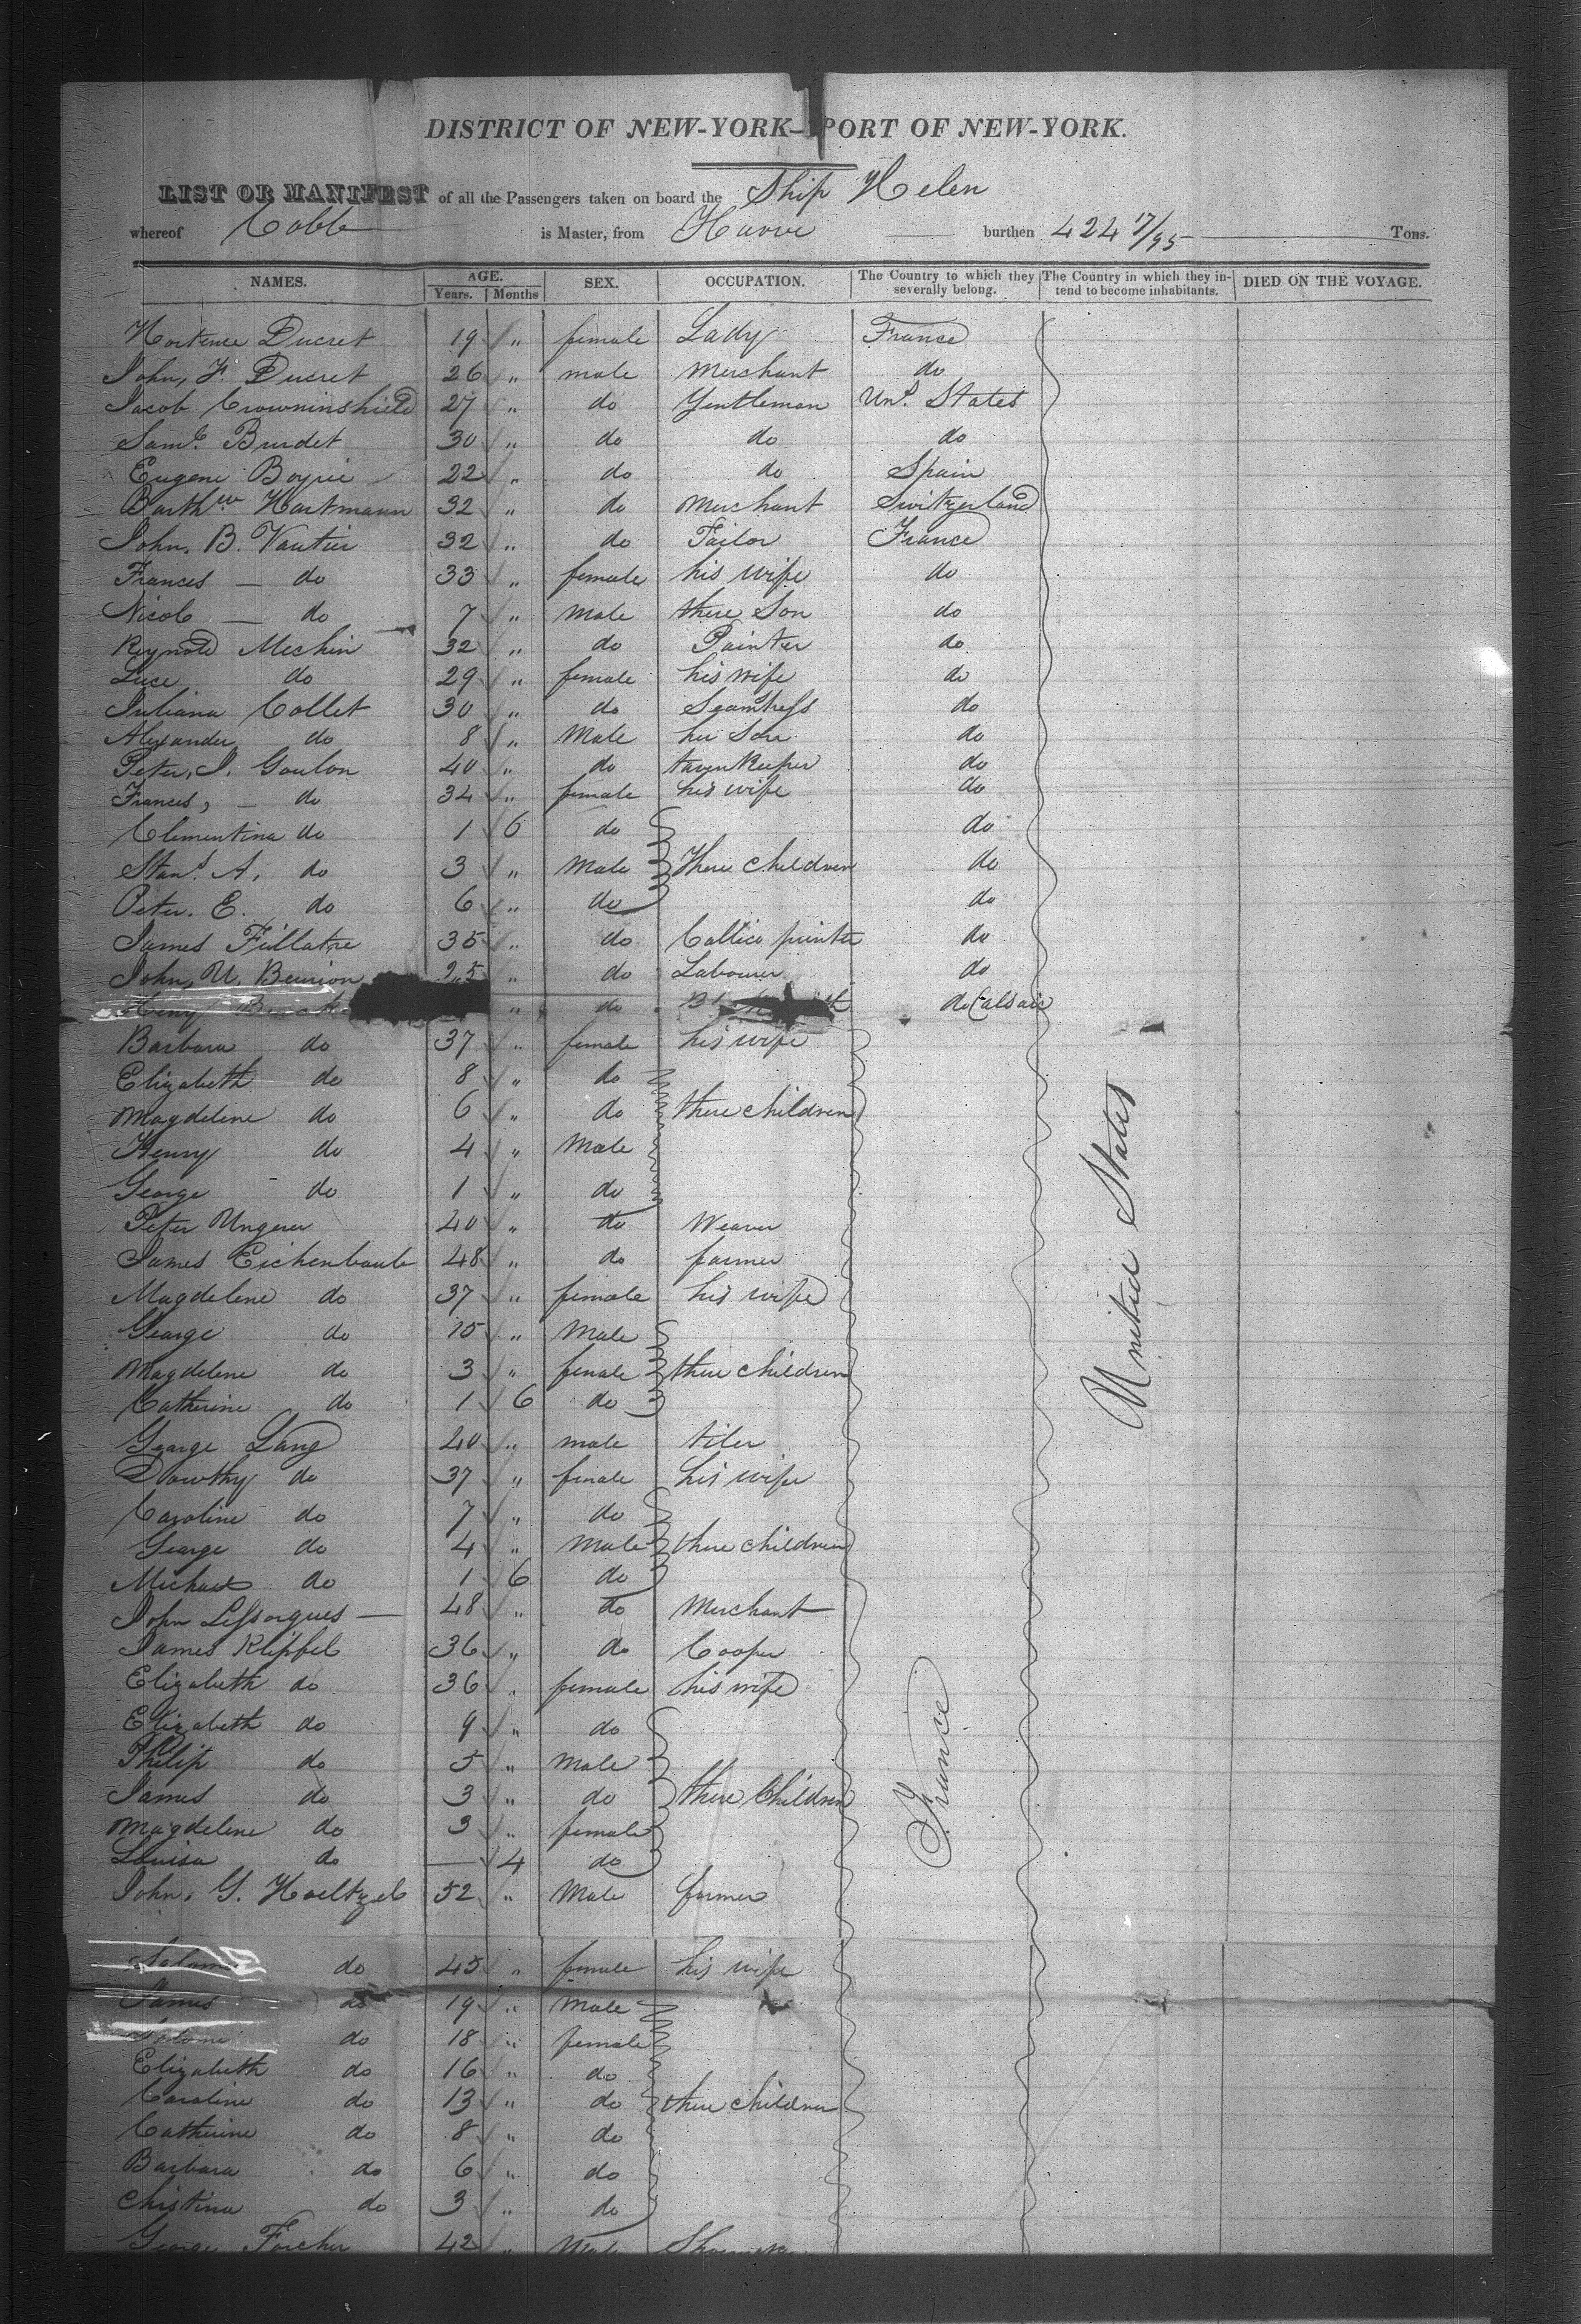 DISTRICT OF NEW-YORK—PORT OF NEW-YORK.
LIST OR MANIFEST of all the Passengers taken on board the Ship Helen
whereof Cobb is Master, from Havre burthen 424 17/95 Tons.
NAMES. AGE. Years. Months SEX. OCCUPATION. The Country to which they severally belong. The Country in which they intend to become inhabitants. DIED ON THE VOYAGE.
Hortense Ducret 19 " female Lady France
John, F. Ducret 26 " male Merchant do
Jacob Crowninshield 27 " do Gentleman Und. States
Saml. Burdet 30 " do do do
Eugene 22 " do do Spain
Barthw Hartmann 32 " do Merchant Switzerland
John, B. Vautier 32 " do Tailor France
Frances — do 33 " female his wife do
Nicol — do 7 " Male there Son do
Reynold Mechin 32 " do Painter do
Luce do 29 " female his wife do
Juliana Collet 30 " do Seamtress do
Alexander do 8 " Male her Son do
Peter, J. Goulon 40 " do tavern keeper do
Frances, — do 34 " female his wife do
Clementina do 1 6 do do
Stand. A. do 3 " Male There children do
Peter. E. do 6 " do do
James Fillatre 35 " do Callico printer do
John, U. 25 " do Labourer do
Heny " do do (alsaic
Barbara do 37 " female his wife
Elizabeth do 8 " do
Magdelene do 6 " do there children
Henry do 4 " Male
George do 1 " do
Peter Ungerer 40 " do Weaver
James Eichenlaub 48 " do farmer
Magdelene do 37 " female his wife
George do 15 " Male
Magdelene do 3 " female there children
Catherine do 1 6 do
George Lang 40 " male tiler
Dorothy do 37 " female his wife
Caroline do 7 " do
George do 4 " Male there children
Michael do 1 6 do
John Lessorgues — 48 " do Merchant
James Klipfel 36 " do Cooper
Elizabeth do 36 " female his wife
Elizabeth do 9 " do
Philip do 5 " Male
James do 3 " do there Children
Magdelene do 3 " female
Louisa do — 4 do
John, G. Hoeltzel 52 " Male farmer
Salome do 45 " female his wife
James do 19 " Male
Salome do 18 " female
Elizabeth do 16 " do
Caroline do 13 " do there children
Catherine do 8 " do
Barbara do 6 " do
Christina do 3 " do
George Forcher 42 " Male
France
United States